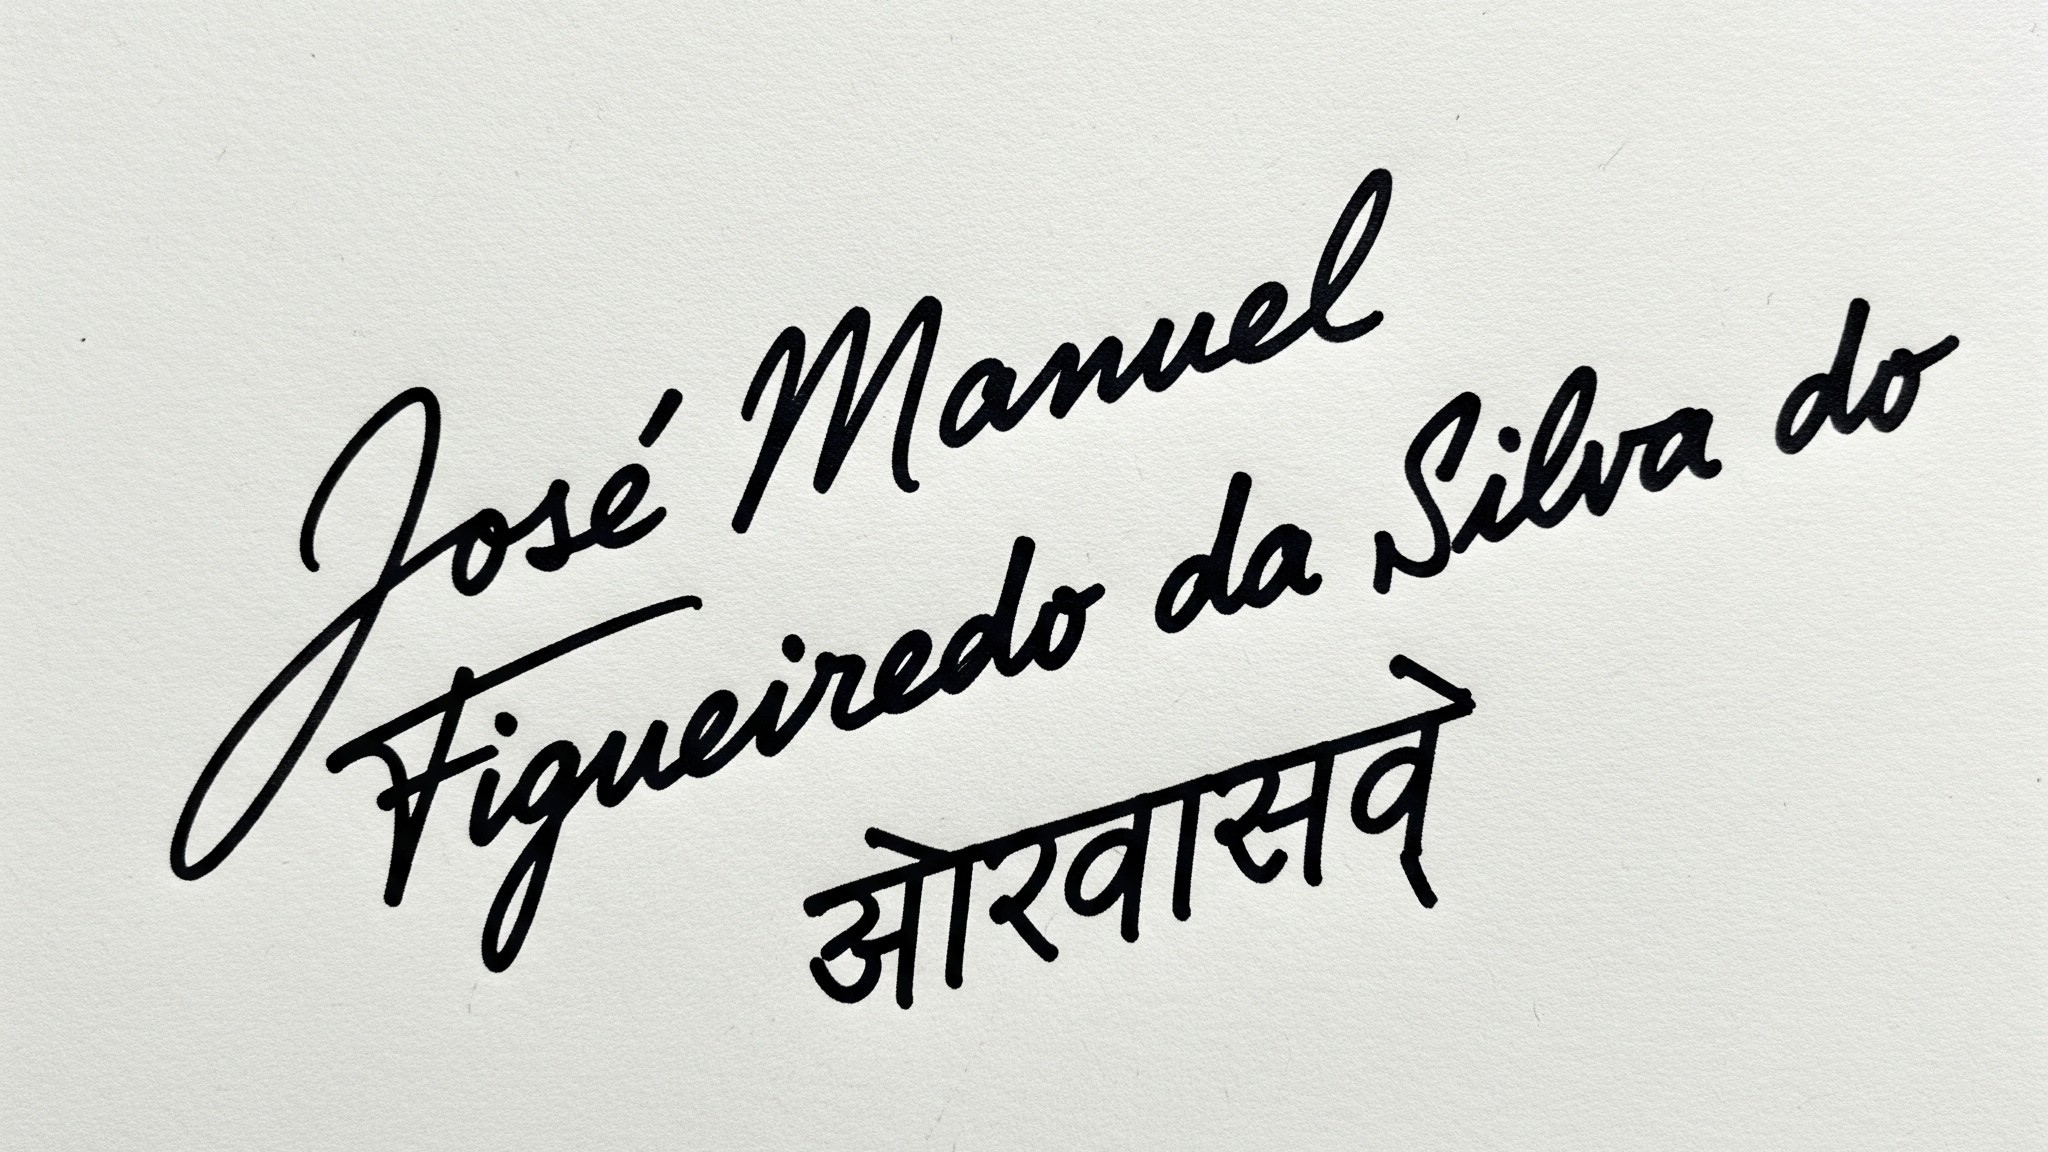 José Manuel
Figueiredo da Silva do
ओरवासवे्